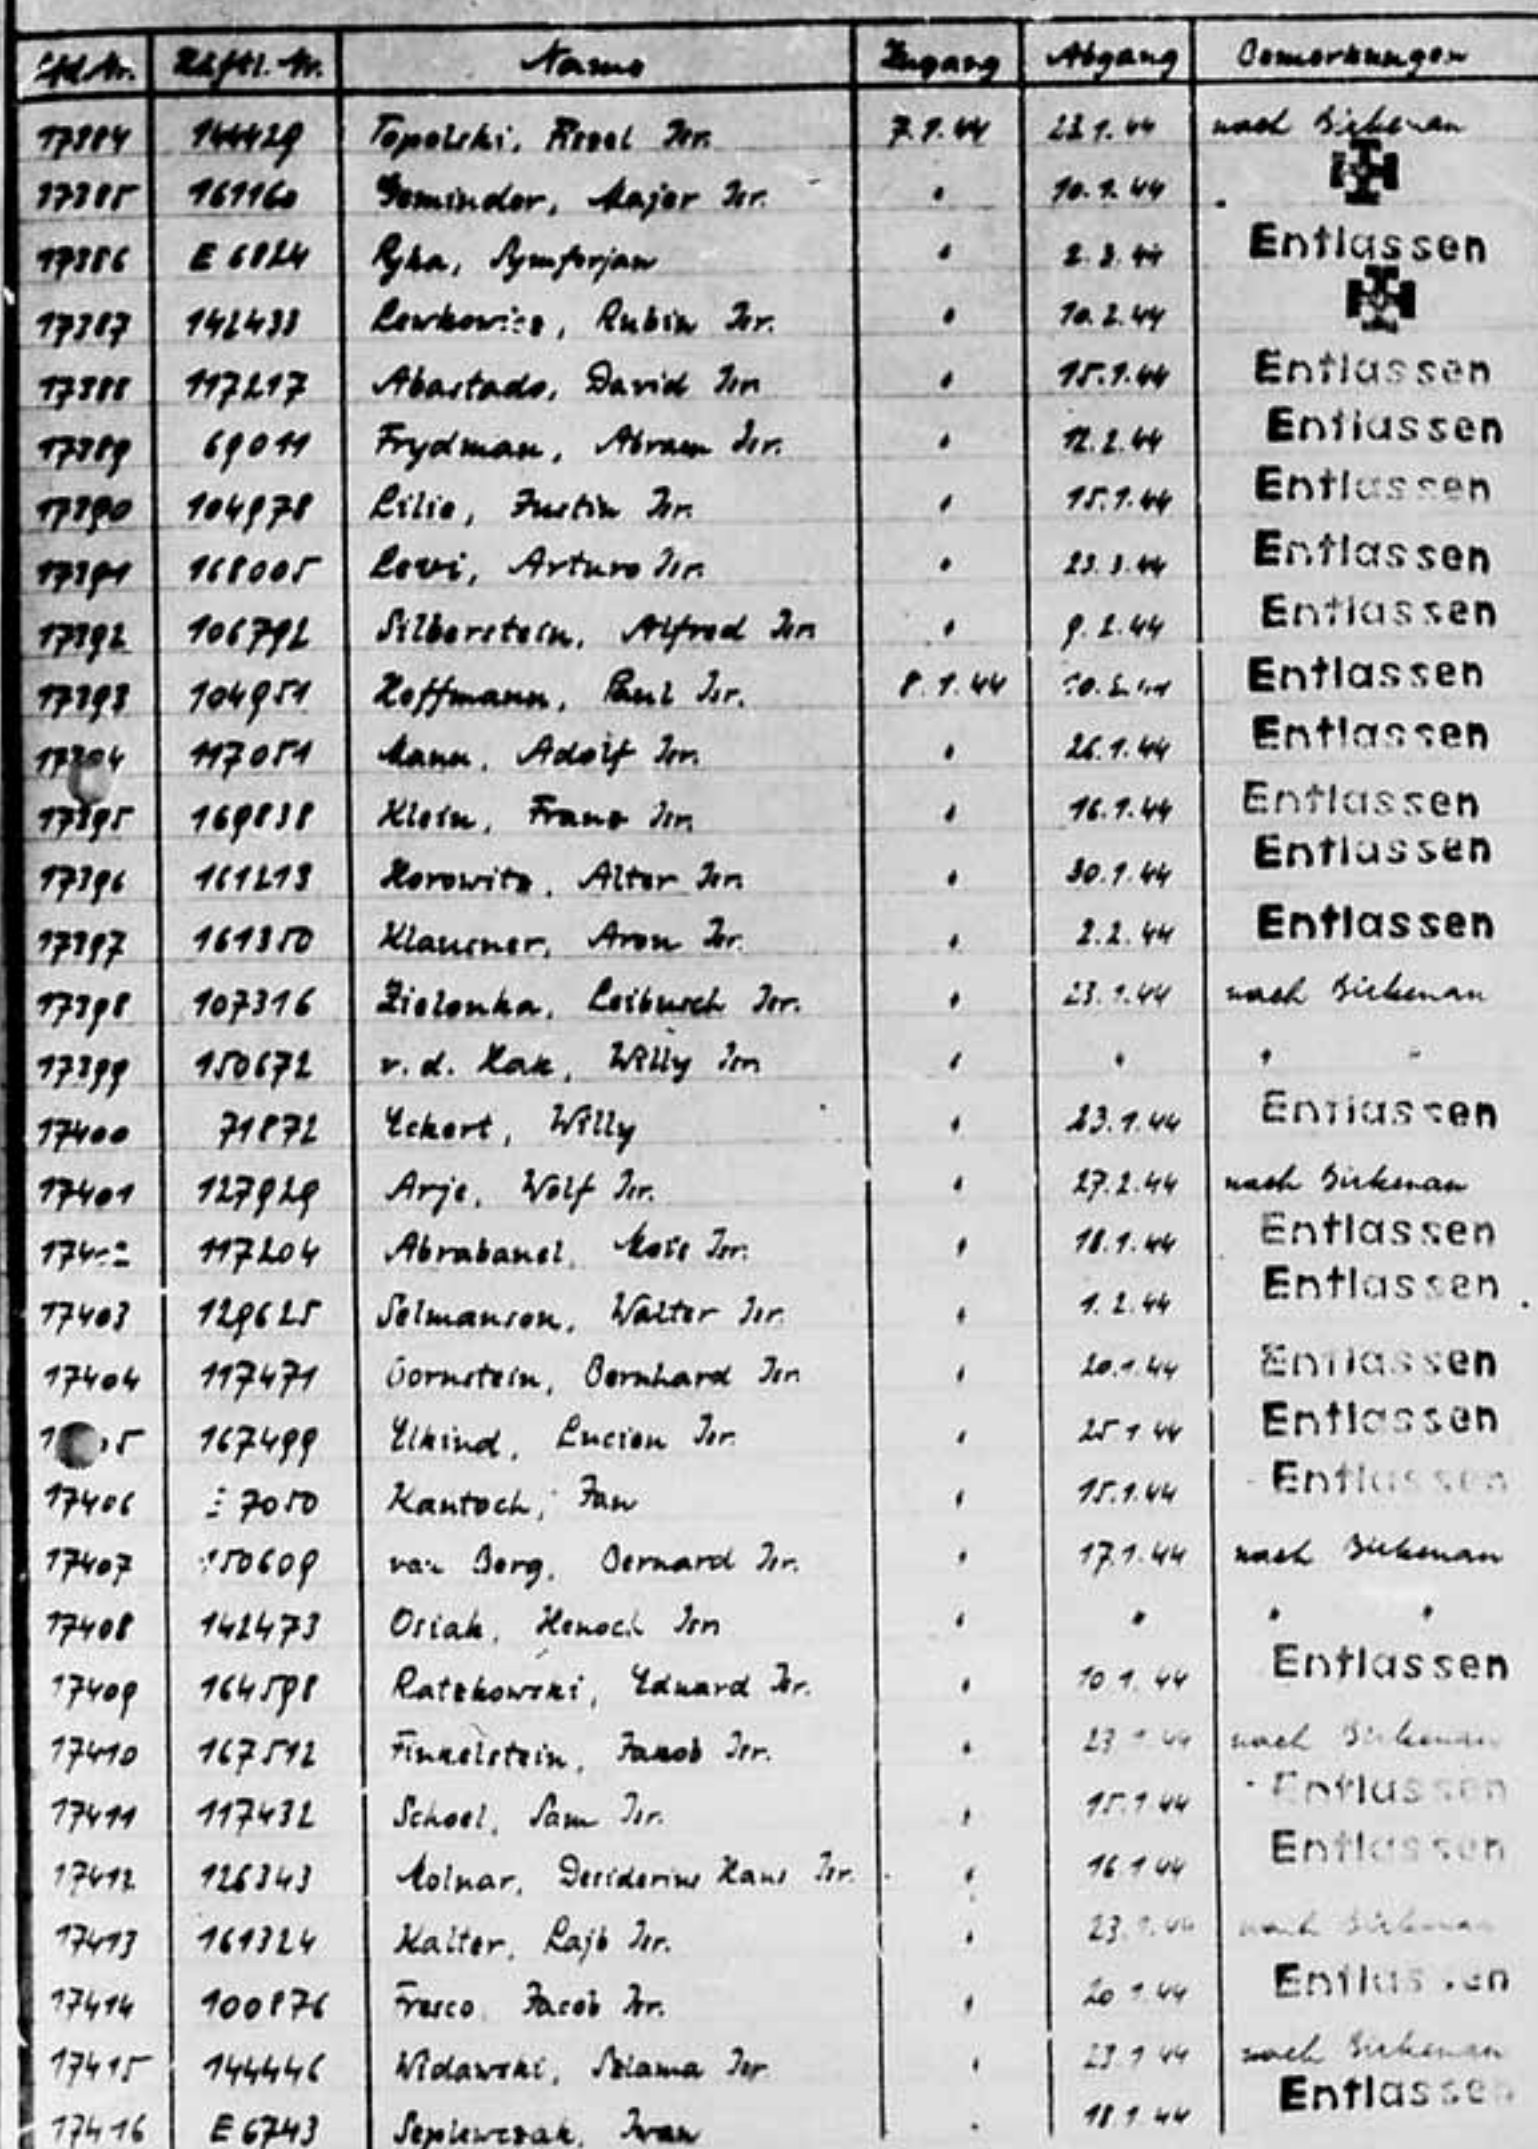 Lfd.Nr. Häftl.Nr. Name Zugang Abgang Bemerkungen
17384 144429 Topolski, Isr. 7.1.44 23.1.44 nach Birkenau
17385 161160 Gemindor, Major Isr. " 10.1.44
17386 E 6824 Ryka, Symforjan " 2.2.44 Entlassen
17387 142433 Lewkowicz, Rubin Isr. " 10.2.44
17388 117217 Abastado, David Isr. " 15.1.44 Entlassen
17389 69011 Frydman, Abram Isr. " 12.2.44 Entlassen
17390 104978 Lilie, Justin Isr. " 15.1.44 Entlassen
17391 168005 Levi, Arturo Isr. " 23.3.44 Entlassen
17392 106792 Silberstein, Alfred Isr. " 9.2.44 Entlassen
17393 104951 Hoffmann, Paul Isr. 8.1.44 Entlassen
17394 117051 Mann, Adolf Isr. " 26.1.44 Entlassen
17395 169838 Klein, Franz Isr. " 16.1.44 Entlassen
17396 161213 Horowitz, Alter Isr. " 30.1.44 Entlassen
17397 161350 Klausner, Aron Isr. " 2.2.44 Entlassen
17398 107316 Zielonka, Leibusch Isr. " 23.1.44 nach Birkenau
17399 150672 v.d. Hak, Willy Isr. " " " "
17400 71872 Eckert, Willy " 23.1.44 Entlassen
17401 127929 Arje, Wolf Isr. " 27.2.44 nach Birkenau
117204 Abrabanel, Mois Isr. " 18.1.44 Entlassen
17403 129625 Selmanson, Walter Isr. " 1.2.44 Entlassen
17404 117471 Bornstein, Bernhard Isr. " 20.1.44 Entlassen
167499 Elkind, Lucien Isr. " 25.1.44 Entlassen
17406 7050 Kantoch, Jan " 15.1.44 Entlassen
17407 150609 van Berg, Bernard Isr. " 17.1.44 nach Birkenau
17408 142473 Osiak, Henoch Isr. " " " "
17409 164598 Ratzkowski, Eduard Isr. " 10.1.44 Entlassen
17410 167512 Finkelstein, Jakob Isr. " 23.1.44 nach Birkenau
17411 117432 Schoel, Sam Isr. " 15.1.44 Entlassen
17412 126343 Molnar, Desiderius Hans Isr. " 16.1.44 Entlassen
17413 161324 Kalter, Lajb Isr. " 23.1.44 nach Birkenau
17414 100876 Fresco, Jacob Isr. " 20.1.44 Entlassen
17415 144446 Widawski, Szlama Isr. " 23.1.44 nach Birkenau
17416 E 6743 Iwan " 18.1.44 Entlassen